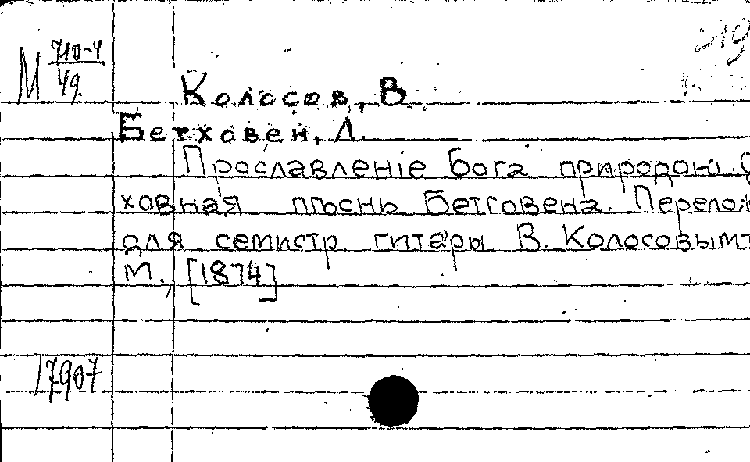 М 710-4/49
Колосов, В.
Бетховен, Л.
Прославленіе Бога природою
ховная пѣснь Бетговена. Перелож
для семистр гитары В. Колосовымъ
М., [1874]
17907